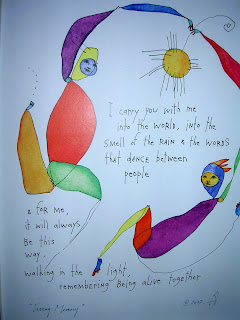 I carry you with me
into the world, into the
smell of the rain & the words
that dance between
people
& for me,
it will always
Be this
way,
walking in the light,
remembering Being alive together